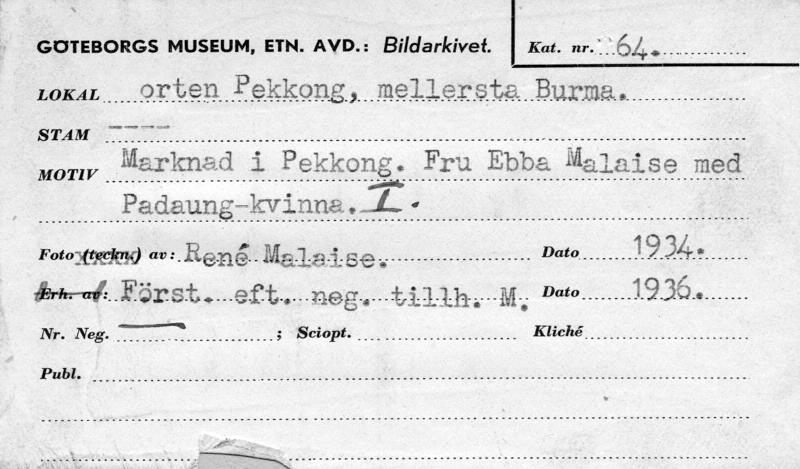 GÖTEBORGS MUSEUM, ETN. AVD.: Bildarkivet. Kat. nr. 64.
LOKAL orten Pekkong, mellersta Burma.
STAM ----
MOTIV Marknad i Pekkong. Fru Ebba Malaise med
Padaung-kvinna. I.
Foto (teckn.) av: René Malaise. Dato 1934.
Erh. av: Först. eft. neg. tillh. M. Dato 1936.
Nr. Neg. ; Sciopt. Kliché
Publ.